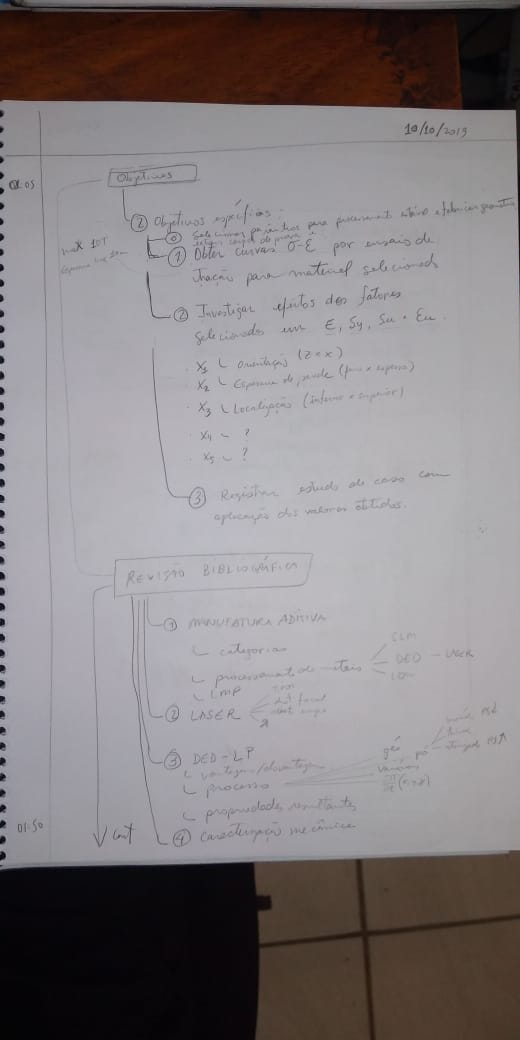 10/10/2019
01.05
Objetivos
② Objetivos específicos:
⓪ Selecionar parâmetros para processamento e fabricar geometria
① Obter curvas σ-ε por ensaios de
tração para material selecionado
② Investigar efeitos dos fatores
selecionados em E, Sy, Su e Eu.
X1 ↳ Orientação (Z e X)
X2 ↳ Espessura de parede (fina x espessa)
X3 ↳ Localização (inferior e superior)
X4 ?
X5 ?
③ Registrar estudo de caso com
aplicação dos valores obtidos.
REVISÃO BIBLIOGRÁFICA
① MANUFATURA ADITIVA
↳ categorias
↳ processamento de metais
SLM
DED - LASER
↳ LMP
② LASER
dist focal
③ DED-LP
↳ vantagens/desvantagens
↳ processo
gás
pó
↳ propriedades resultantes
④ Caracterização mecânica
01.50
cont